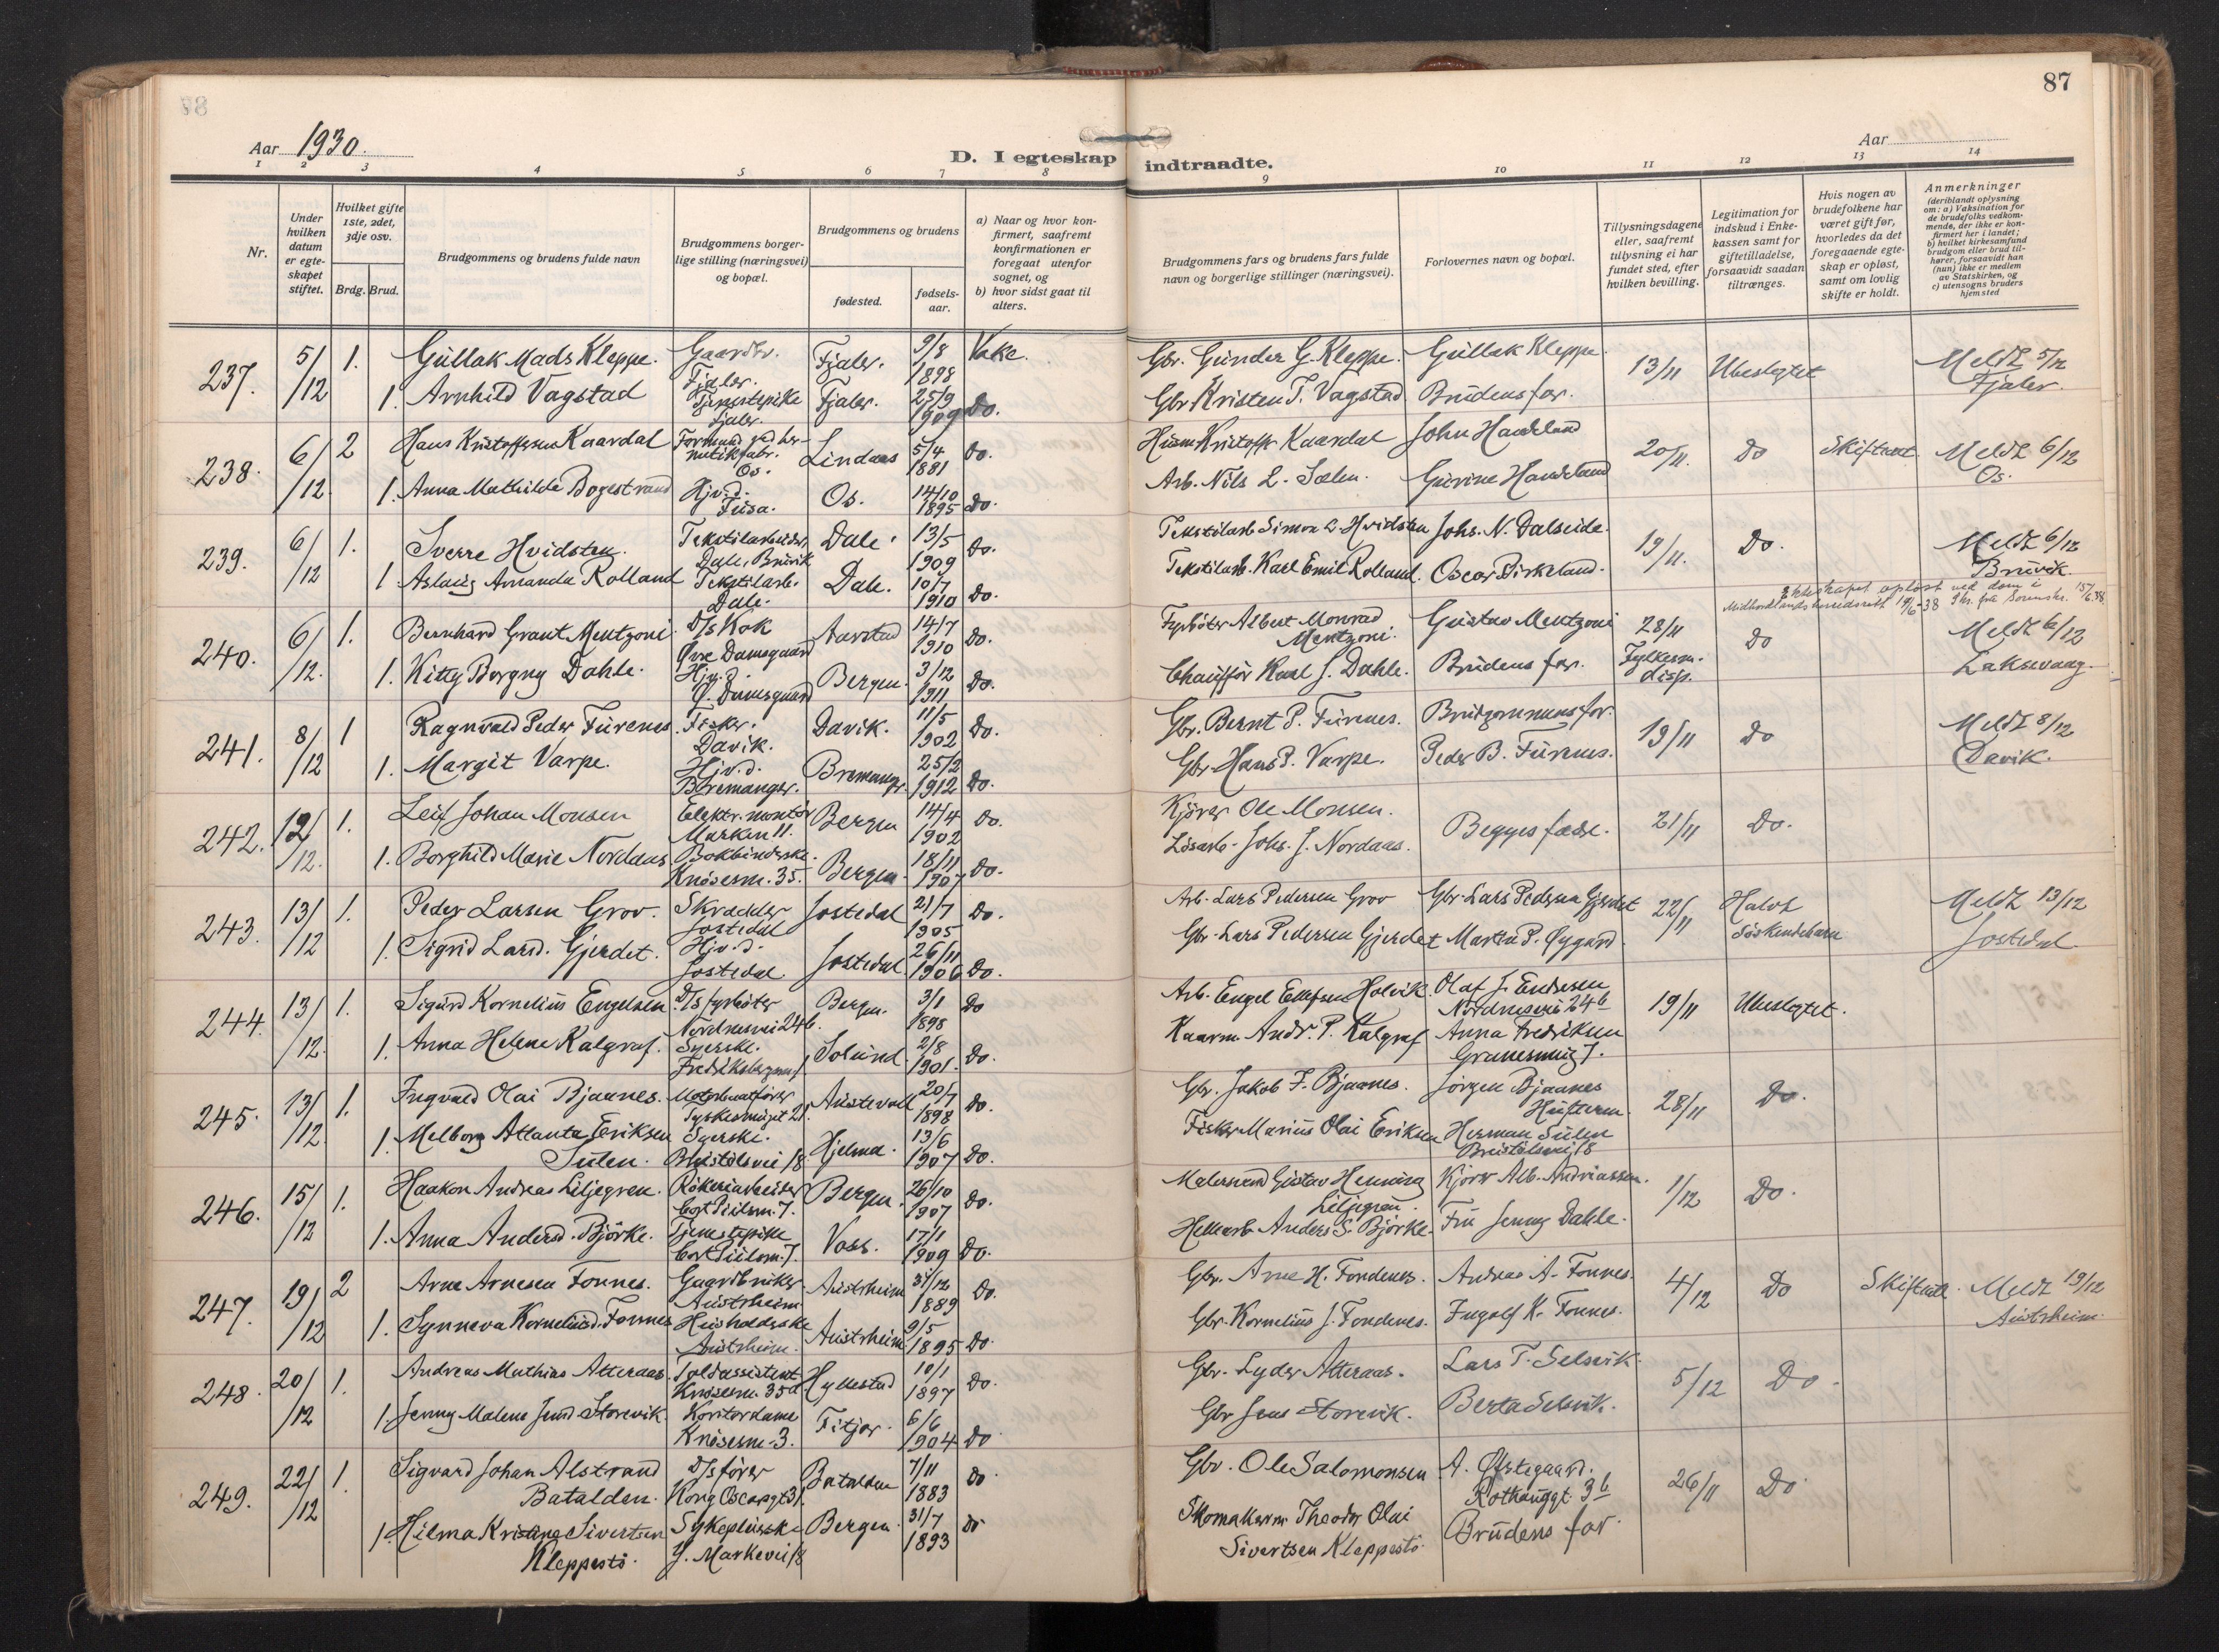 87
Aar 1930.
Aar
D. I egteskap indtraadte.
1 2 3 4 5 6 7 8 9 10 11 12 13 14
Nr.
Under hvilken datum er egteskapet stiftet.
Hvilket gifte 1ste, 2det, 3dje osv.
Brdg. Brud.
Brudgommens og brudens fulde navn
Brudgommens borgerlige stilling (næringsvei) og bopæl.
Brudgommens og brudens
fødested.
fødselsaar.
a) Naar og hvor konfirmert, saafremt konfirmationen er foregaat utenfor sognet, og
b) hvor sidst gaat til alters.
Brudgommens fars og brudens fars fulde navn og borgerlige stillinger (næringsvei).
Forlovernes navn og bopæl.
Tillysningsdagene eller, saafremt tillysning ei har fundet sted, efter hvilken bevilling.
Legitimation for indskud i Enkekassen samt for giftetilladelse, forsaavidt saadan tiltrænges.
Hvis nogen av brudefolkene har været gift før, hvorledes da det foregaaende egteskap er opløst, samt om lovlig skifte er holdt.
Anmerkninger (deriblandt oplysning om: a) Vaksination for de brudefolks vedkommende, der ikke er konfirmert her i landet; b) hvilket kirkesamfund brudgom eller brud tilhører, forsaavidt han (hun) ikke er medlem av Statskirken, og c) utensogns bruders hjemsted
237. 5/12 1. Gullak Mads Kleppe. Gaardbr. Fjaler. Fjaler. 9/8 1898 Vake. Gbr. Gunder G. Kleppe. Gullak Kleppe. 13/11 Ubeslegtet Meldt 5/12 Fjaler.
1. Arnhild Vagstad Tjenestepike Fjaler. Fjaler. 25/9 1909 Do. Gbr Kristen T. Vagstad Brudens far.
238. 6/12 2 Hans Kristoffersen Kaardal Formand ved hermetikfabr. Os. Lindaas 5/4 1881 Do. Husm Kristoffer Kaardal John Haukeland 20/11. Do Skiftet Meldt 6/12 Os.
1. Anna Mathilde Bogestrand Hjv.d. Fusa. Os. 14/10 1895 Do. Arb. Nils L. Sælen. Gurine Haukeland
239. 6/12 1. Sverre Hvidsten. Tekstilarbeider, Dale, Bruvik Dale. 13/5 1909 Do. Tekstilarb. Simon L. Hvidsten Johs. N. Dalseide 19/11. Do. Meldt 6/12 Bruvik.
1 Aslaug Amanda Rolland Tekstilarb. Dale. Dale. 10/7 1910 Do. Tekstilarb. Karl Emil Rolland. Oscar Birkeland.
Ekteskapet opløst ved dom i
Midhordlands herredsrett 19/6-38 Skr. fra Sorenskr. 15/6.38
240. 6/12. 1. Bernhard Grant Mentzoni D/s Kok Øvre Damsgaard Aarstad 14/7 1910 Do. Fyrbøter Albert Monrad Mentzoni. Gustav Mentzoni 28/11 Fylkesm. disp. Do Meldt 6/12 Laksevaag.
1. Kitty Borgny Dahle. Hjv.d. Ø. Damsgaard Bergen. 3/12 1911 Do. Chauffør Karl J. Dahle. Brudens far.
241. 8/12 1 Ragnvald Peder Furenes. Fisker. Davik. Davik. 11/5 1902 Do. Gbr. Bernt P. Furenes. Brudgommens far. 19/11 Do Meldt 8/12 Davik.
1. Margit Varpe. Hjv.d. Bremanger. Bremangr. 25/2 1912 Do. Gbr Hans P. Varpe. Peder B. Furenes.
242. 12/12. 1. Leif Johan Monsen Elektr. montør Marken 11. Bergen 14/4 1902 Do. Kjører Ole Monsen. Begges fædre. 21/11 Do.
1. Borghild Marie Nordaas Bokbinderske. Knøsesm. 35. Bergen. 18/11 1907 Do. Løsarb. Johs. J. Nordaas.
243. 13/12 1. Peder Larsen Grov. Skrædder Jostedal Jostedal 21/7 1905 Do. Arb. Lars Pedersen Grov Gbr Lars Pedersen Gjerdet 22/11 Halvt Søskendebarn Meldt 13/12 Jostedal
1. Sigrid Larsd. Gjerdet. Hjv.d. Jostedal Jostedal 26/11 1906 Do. Gbr. Lars Pedersen Gjerdet Martin P. Øygard.
244. 13/12. 1. Sigurd Kornelius Engelsen D/s fyrbøter Nordnesvei 24b. Bergen. 3/1 1898 Do Arb. Engel Ellefsen Holvik. Olaf J. Endresen Nordnesvei 24b 19/11 Ubeslegtet.
1. Anna Helene Kalgraf. Syerske. Solund. 2/8 1901. Do. Kaarm. Andr. P. Kalgraf Anna Fredriksen
245. 13/12 1. Ingvald Olai Bjaanes. Motorbaatfører Tyskesmuget 21. Austevoll 20/7 1898 Do. Gbr. Jakob F. Bjaanes. Jørgen Bjaanes Hufterm. 28/11 Do.
1. Melborg Atlanta Eriksen Sulen. Syerske. Hjelme. 13/6 1907 Do. Fisker Marius Olai Eriksen Herman Sulen
246. 15/12 1. Haakon Andreas Liljegren. Røkeriarbeider Cort Piilsm. 7. Bergen. 26/10 1907 Do. Malersvend Gustav Henning Liljegren. Kjører Alb. Andreassen. 1/12 Do.
1. Anna Andersd. Bjørke. Tjenestepike Cort Piilsm. 7. Voss. 17/1 1909 Do. Hellearb. Anders S. Bjørke. Fru Jenny Dahle.
247. 19/12 2 Arne Arnesen Fonnes. Gaardbruker Austrheim Austrheim 31/12 1889 Do. Gbr. Arne H. Fondenes. Andreas A. Fonnes. 4/12 Do Skiftet Meldt 19/12 Austrheim.
1. Synneva Korneliusd. Fonnes Husholderske Austrheim. Austrheim. 9/5 1895 Do. Gbr. Kornelius J. Fondenes. Ingolf K. Fonnes.
248. 20/12 1. Andreas Mathias Atteraas. Toldassistent Knøsesm. 35a Hyllestad 10/1 1897 Do. Gbr. Lyder Atteraas. Lars T. Selsvik. 5/12 Do.
1. Jenny Malene Jensd. Storevik. Kontordame Knøsesm. 3. Fitjar. 6/6 1904 Do Gbr Jens Storevik. Berta Selsvik.
249. 22/12 1. Sigvard Johan Alstrand Batalden. D/s fører Kong Oscarsgt 31 Batalden 7/11 1883 Do. Gbr. Ole Salomonsen A. Østegaard. Rothauggt. 3b 26/11 Do
1. Hilma Kristine Sivertsen Kleppestø. Sykepleierske Y. Markevei 18 Bergen. 31/7 1893 Do Skomakerm Theodor Olai Sivertsen Kleppestø. Brudens far.